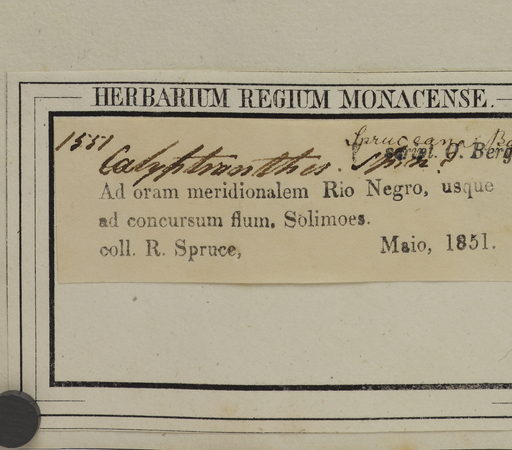 HERBARIUM REGIUM MONACENSE.
1551
Spruceana Be
Calyptranthes. O. Berg
Ad oram meridionalem Rio Negro, usque
ad concursum flum. Solimoes.
coll. R. Spruce, Maio, 1851.